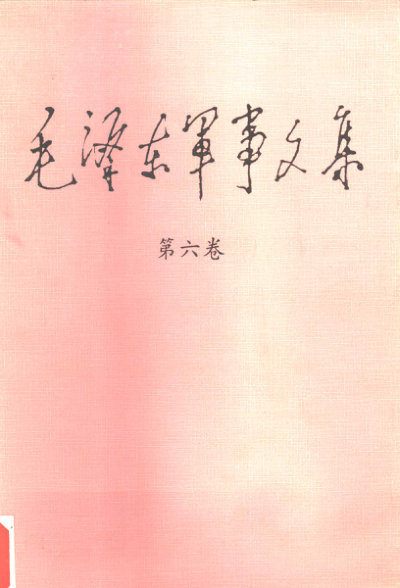 毛泽东军事文集
第六卷